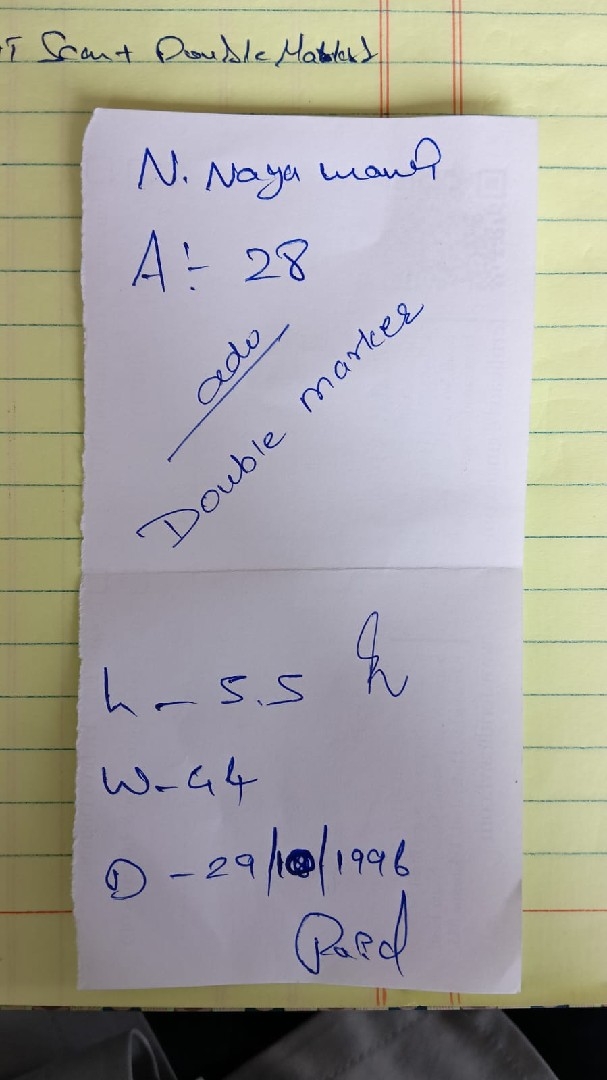 Scan + Double Marker
N. Nayamani
A :- 28
ado
Double marker
h - 5.5
W - 94
D - 29/10/1996
Paid